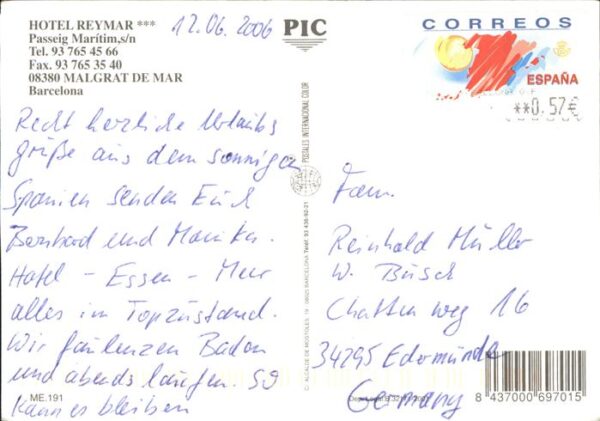 HOTEL REYMAR ***
Passeig Marítim,s/n
Tel. 93 765 45 66
Fax. 93 765 35 40
08380 MALGRAT DE MAR
Barcelona
12.06.2006
PIC
CORREOS
ESPAÑA
**0,57€
Recht herzliche Urlaubs
grüße aus dem sonnigen
Spanien senden Euch
Bernhard und Monika.
Hotel - Essen - Meer
alles im Topzustand.
Wir faulenzen Baden
und abends laufen. So
kann es bleiben
POSTALES INTERNATIONAL COLOR
Fam.
Reinhold Müller
W. Busch
Chattenweg 16
34295 Edermünde
Germany
ME.191
8 437000 697015